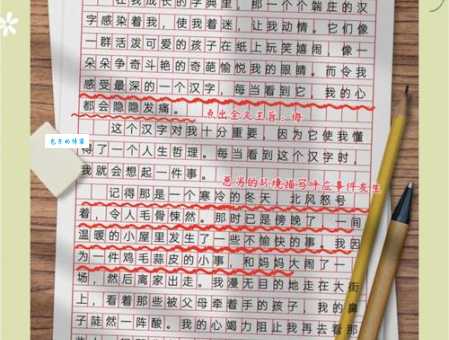 在我成长的字典里，那一个个端庄的汉
字感染着我，使我着迷，让我动情。它们像
一群活泼可爱的孩子在纸上玩笑嬉闹，像一
朵朵争奇斗艳的奇葩愉悦我的眼睛。而令我
感受最深的一个汉字，每当看到它，我的心
都会隐隐发痛。
点出全文主旨
这个汉字对我十分重要，因为它使我懂
得了一个人生哲理。每当看到这个汉字时，
我就会想起一件事。
的环境描写呼应事件发生
记得那是一个寒冷的冬天，北风怒号
着，令人毛骨悚然。那时已是傍晚了，一间
温暖的小屋里发生了一些不愉快的事。我因
为一件鸡毛蒜皮的小事，和妈妈大闹了一
场，然后离家出走。我漫无目的地走在大街
上，看着那些被父母牵着手的孩子，我的鼻
子陡然一阵酸。我的心竭力阻止我再去看那